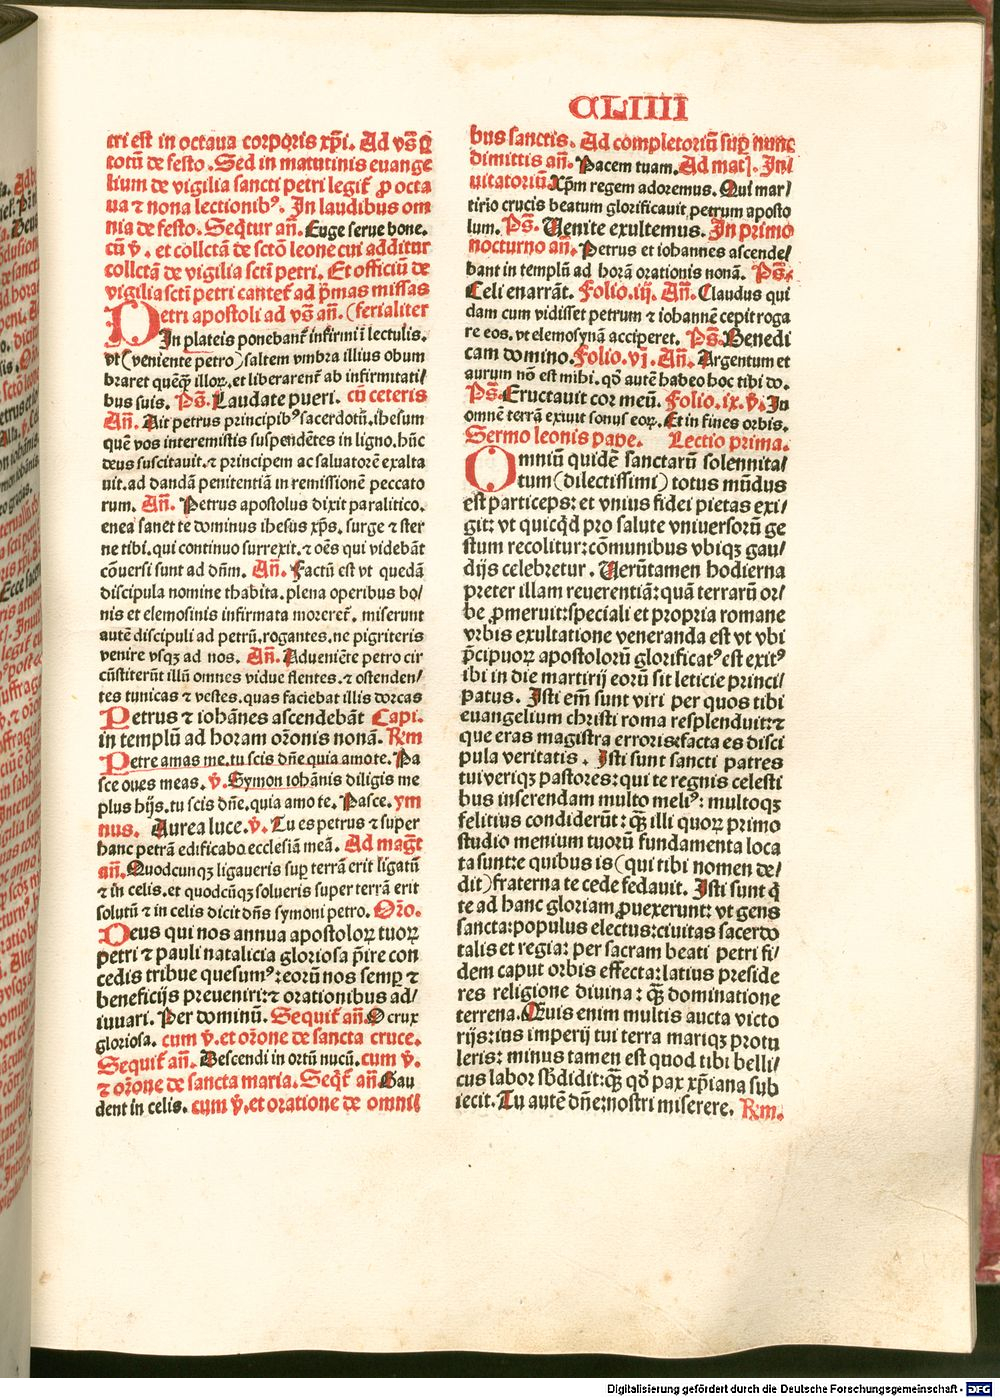 CLIIII
tri est in octaua corporis xp̄i. Ad vs̄ ꝑ
totū de festo. Sed in matutinis euange
lium de vigilia sancti petri legit᷑ ꝓ octa
ua ⁊ nona lectionibꝰ. In laudibus om
nia de festo. Seq̄tur an̄. Euge serue bone.
cū v̄. et collectā de sctō leone cui additur
collctā de vigilia sctī petri. Et officiū de
vigilia sctī petri cantet᷑ ad p̄mas missas
Petri apostoli ad vs̄ an̄. (ferialiter
In plateis ponebant᷑ infirmi ī lectulis.
vt (veniente petro) saltem vmbra illius obum
braret quēqꝫ illoꝝ. et liberarent᷑ ab infirmitati/
bus suis. Ps̄. Laudate pueri. cū ceteris
An̄. Ait petrus principibꝰ sacerdotū. ihesum
quē vos interemistis suspendētes in ligno. hūc
deus suscitauit. ⁊ principem ac saluatorē exalta
uit. ad dandā penitentiā in remissionē peccato
rum. An̄. Petrus apostolus dixit paralitico.
enea sanet te dominus ihesus xp̄s. surge ⁊ ster
ne tibi. qui continuo surrexit. ⁊ oēs qui videbāt
cōuersi sunt ad dn̄m. An̄. Factū est vt quedā
discipula nomine thabita. plena operibus bo/
nis et elemosinis infirmata moreret᷑. miserunt
autē discipuli ad petrū. rogantes. ne pigriteris
venire vsqꝫ ad nos. An̄. Adueniēte petro cir
cūstiterūt illū omnes vidue flentes. ⁊ ostenden/
tes tunicas ⁊ vestes. quas faciebat illis dorcas
Petrus ⁊ iohānes ascendebāt Capi.
in templū ad horam orōnis nonā. R̄m
Petre amas me. tu scis dn̄e quia amo te. Pa
sce oues meas. v̄. Symon iohānis diligis me
plus hijs. tu scis dn̄e. quia amo te. Pasce. ym
nus. Aurea luce. v̄. Tu es petrus ⁊ super
hanc petrā edificabo ecclesiā meā. Ad mag̅t
an̄. Quodcunqꝫ ligaueris suꝑ terrā erit ligatū
⁊ in celis. et quodcūqꝫ solueris super terrā erit
solutū ⁊ in celis dicit dn̄s symoni petro. Orō.
Deus qui nos annua apostoloꝝ tuoꝝ
petri ⁊ pauli natalicia gloriosa p̄ire con
cedis tribue quesumꝰ: eorū nos semꝑ ⁊
beneficijs preueniri: ⁊ orationibus ad/
iuuari. Per dominū. Sequit᷑ an̄. O crux
gloriosa. cum v̄. et orōne de sancta cruce.
Sequit᷑ an̄. Descendi in ortū nucū. cum v̄.
⁊ orōne de sancta maria. Seq̄t᷑ an̄. Gau
dent in celis. cum v̄. et oratione de omni/
bus sanctis. Ad completoriū suꝑ nunc
dimittis an̄. Pacem tuam. Ad mat̄. In/
uitatoriū. Xp̄m regem adoremus. Qui mar/
tirio crucis beatum glorificauit petrum aposto
lum. Ps̄. Uenite exultemus. In primo
nocturno an̄. Petrus et iohannes ascende/
bant in templū ad horā orationis nonā. Ps̄.
Celi enarrāt. Folio. iij. An̄. Claudus qui
dam cum vidisset petrum ⁊ iohannē cepit roga
re eos. vt elemosynā acciperet. Ps̄. Benedi
cam domino. Folio. vj. An̄. Argentum et
aurum nō est mihi. qd̄ autē habeo hoc tibi do.
Ps̄. Eructauit cor meū. Folio. ix. v̄. In
omnē terrā exiuit sonus eoꝝ. Et in fines orbis.
Sermo leonis pape. Lectio prima.
Omniū quidē sanctarū solennita/
tum (dilectissimi) totus mūdus
est particeps: et vnius fidei pietas exi/
git: vt quicqd̄ pro salute vniuersorū ge
stum recolitur: cōmunibus vbiqꝫ gau/
dijs celebretur. Uerūtamen hodierna
preter illam reuerentiā: quā terrarū or/
be ꝓmeruit: speciali et propria romane
vrbis exultatione veneranda est vt vbi
p̄cipuoꝝ apostolorū glorificatꝰ est exitꝰ
ibi in die martirij eorū sit leticie princi/
patus. Isti em̄ sunt viri per quos tibi
euangelium christi roma resplenduit: ⁊
que eras magistra erroris: facta es disci
pula veritatis. Isti sunt sancti patres
tui veriqꝫ pastores: qui te regnis celesti
bus inserendam multo meliꝰ: multoqꝫ
felitius condiderūt: qꝫ̄ illi quoꝝ primo
studio menium tuorū fundamenta loca
ta sunt: e quibus is (qui tibi nomen de/
dit) fraterna te cede fedauit. Isti sunt q̄
te ad hanc gloriam ꝓuexerunt: vt gens
sancta: populus electus: ciuitas sacerdo
talis et regia: per sacram beati petri si/
dem caput orbis effecta: latius preside
res religione diuina: qꝫ̄ dominatione
terrena. Quis enim multis aucta victo
rijs: ius imperij tui terra mariqꝫ protu
leris: minus tamen est quod tibi belli/
cus labor sb̄didit: qꝫ̄ qd̄ pax xp̄iana sub
iecit. Tu autē dn̄e: nostri miserere. R̄m.
Digitalisierung gefördert durch die Deutsche Forschungsgemeinschaft - DFG